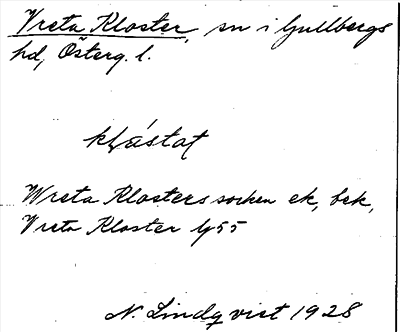 Vreta Kloster, sn i Gullbergs
hd, Österg. l.
klástat
Wreta Klosters socken ek, bek,
Vreta Kloster by 55
N. Lindqvist 1928